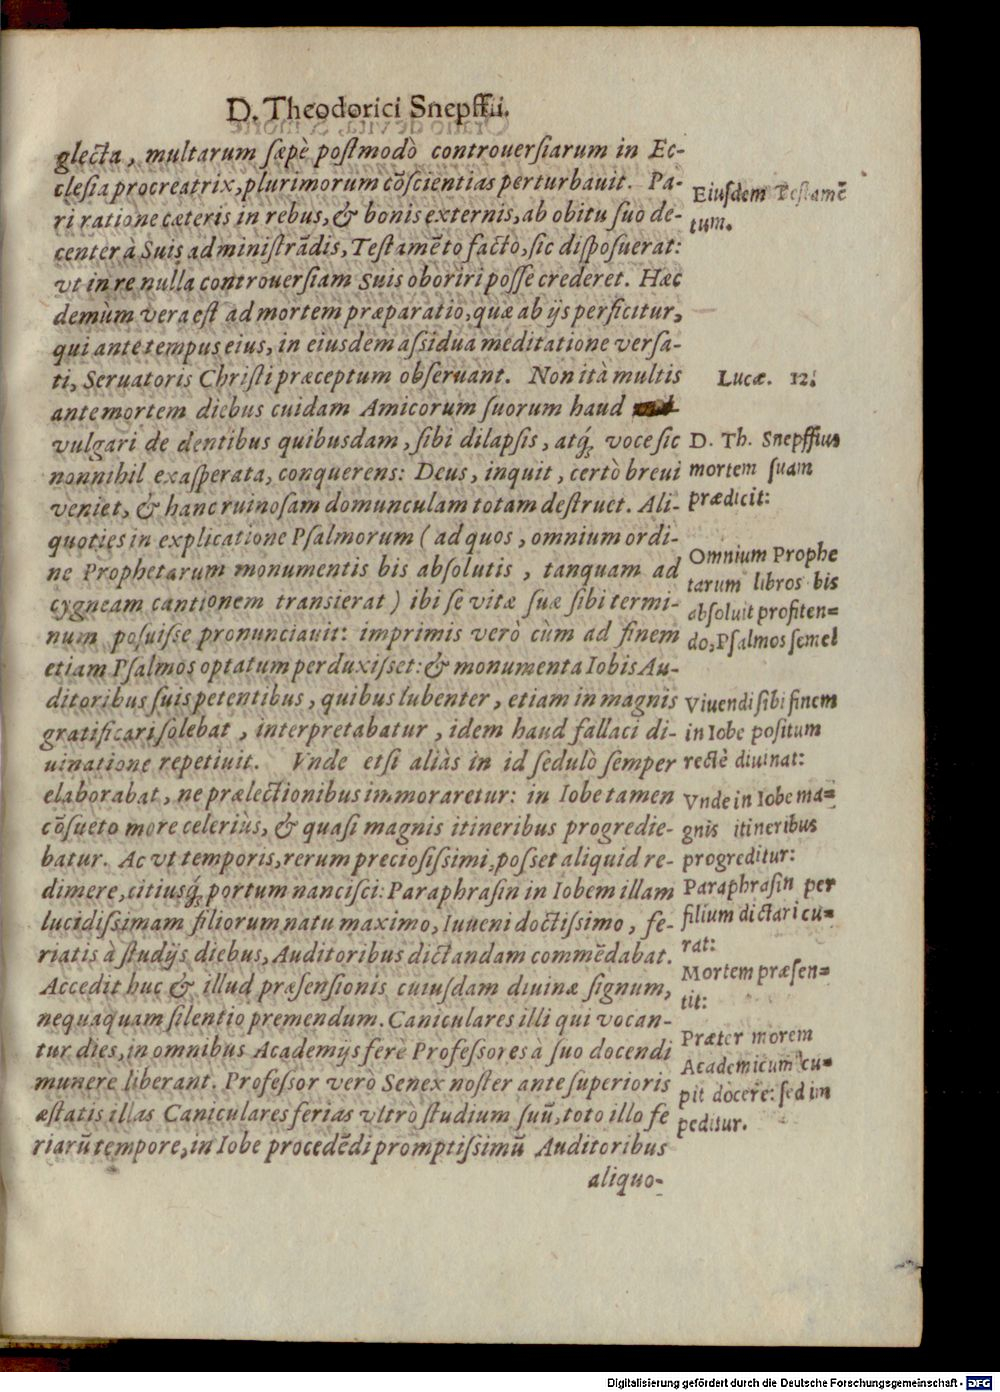 D. Theodorici Snepffii.
glecta, multarum sæpè postmodò controuersiarum in Ec-
clesia procreatrix, plurimorum cõscientias perturbauit. Pa-
ri ratione cæteris in rebus, & bonis externis, ab obitu suo de-
center à Suis administrãdis, Testamẽto facto, sic disposuerat:
vt in re nulla controuersiam suis oboriri posse crederet. Hæc
demùm vera est ad mortem præparatio, quæ ab ijs perficitur,
qui ante tempus eius, in eiusdem assidua meditatione versa-
ti, Seruatoris Christi præceptum obseruant. Non ità multis
ante mortem diebus cuidam Amicorum suorum haud
vulgari de dentibus quibusdam, sibi dilapsis, atq́; voce sic
nonnihil exasperata, conquerens: Deus, inquit, certò breui
veniet, & hanc ruinosam domunculam totam destruet. Ali-
quoties in explicatione Psalmorum ( ad quos, omnium ordi-
ne Prophetarum monumentis bis absolutis, tanquam ad
cygneam cantionem transierat ) ibi se vitæ suæ sibi termi-
num posuisse pronunciauit: imprimis verò cùm ad finem
etiam Psalmos optatum perduxisset: & monumenta Iobis Au-
ditoribus suis petentibus, quibus lubenter, etiam in magnis
gratificari solebat, interpretabatur, idem haud fallaci di-
uinatione repetiuit. Vnde etsi aliàs in id sedulò semper
elaborabat, ne prælectionibus immoraretur: in Iobe tamen
cõsueto more celeriùs, & quasi magnis itineribus progredie-
batur. Ac vt temporis, rerum preciosissimi, posset aliquid re-
dimere, citiusq́; portum nancisci: Paraphrasin in Iobem illam
lucidissimam filiorum natu maximo, Iuueni doctissimo, fe-
riatis à studijs diebus, Auditoribus dictandam commẽdabat.
Accedit huc & illud præsensionis cuiusdam diuinæ signum,
nequaquam silentio premendum. Caniculares illi qui vocan-
tur dies, in omnibus Academijs ferè Professores à suo docendi
munere liberant. Professor verò Senex noster ante superioris
æstatis illas Caniculares ferias vltrò studium suũ, toto illo fe
riarũ tempore, in Iobe procedẽdi promptissimũ Auditoribus
aliquo-
Eiusdem Testamẽ
tum.
Lucæ. 12.
D. Th. Snepffius
mortem suam
prædicit:
Omnium Prophe
tarum libros bis
absoluit profiten-
do, Psalmos semel
Viuendi sibi finem
in Iobe positum
rectè diuinat:
Vnde in Iobe ma-
gnis itineribus
progreditur:
Paraphrasin per
filium dictari cu-
rat:
Mortem præsen-
tit:
Præter morem
Academicum cu-
pit docere: sed im
peditur.
Digitalisierung gefördert durch die Deutsche Forschungsgemeinschaft - DFG